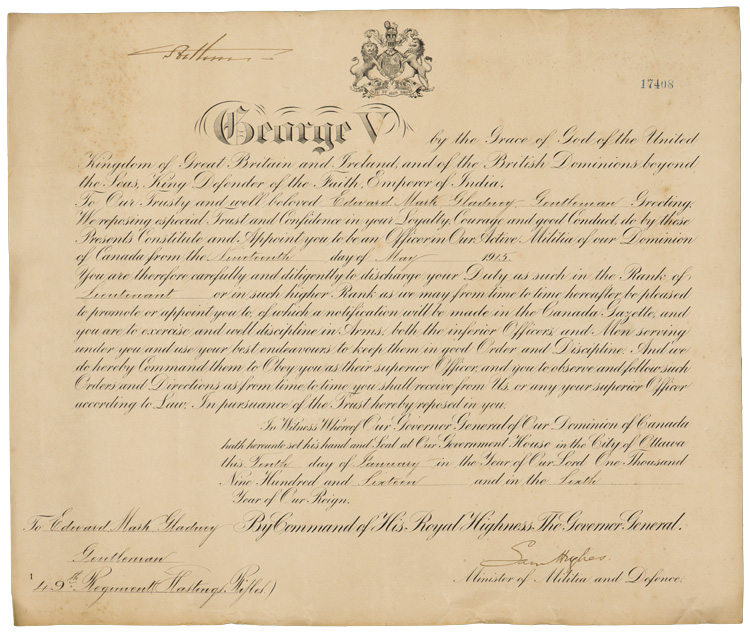 Arthur
17498
George V by the Grace of God of the United
Kingdom of Great Britain and Ireland, and of the British Dominions beyond
the Seas, King Defender of the Faith, Emperor of India.
To Our Trusty and well beloved Edward Mark Gladney Gentleman Greeting:
We reposing especial Trust and Confidence in your Loyalty, Courage and good Conduct, do by these
Presents Constitute and Appoint you to be an Officer in Our Active Militia of our Dominion
of Canada from the Nineteenth day of May 1915.
You are therefore carefully and diligently to discharge your Duty as such in the Rank of
Lieutenant or in such higher Rank as we may from time to time hereafter be pleased
to promote or appoint you to, of which a notification will be made in the Canada Gazette, and
you are to exercise and well discipline in Arms, both the inferior Officers, and Men serving
under you and use your best endeavours to keep them in good Order and Discipline. And we
do hereby Command them to Obey you as their superior Officer, and you to observe and follow such
Orders and Directions as from time to time you shall receive from Us, or any your superior Officer
according to Law, In pursuance of the Trust hereby reposed in you.
In Witness Whereof Our Governor General of Our Dominion of Canada
hath hereunto set his hand and Seal at Our Government House in the City of Ottawa
this Tenth day of January in the Year of Our Lord One Thousand
Nine Hundred and Sixteen and in the Sixth
Year of Our Reign.
To Edward Mark Gladney By Command of His Royal Highness The Governor General.
Gentleman
Sam Hughes
49th Regiment (Hastings Rifles) Minister of Militia and Defence.